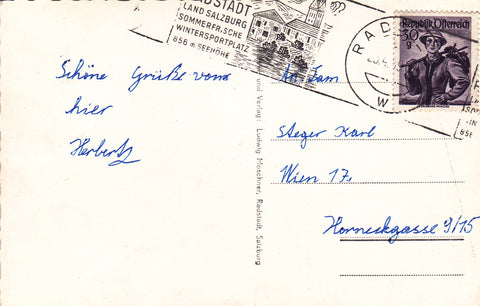 RADSTADT
LAND SALZBURG
SOMMERFRISCHE
WINTERSPORTPLATZ
856 m SEEHÖHE
RADS
W
Republik Österreich
30
g
IN
856
Schöne Grüße von
hier
Herbert
und Verlag: Ludwig Moschner, Radstadt, Salzburg
An Fam
Steger Karl
Wien 17,
Horneckgasse 9/15